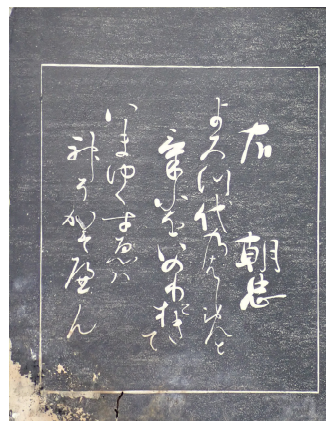 右　朝忠
よろつ代乃はしめと
けふをいのりおきて
いまゆくすゑハ
神そかそへん